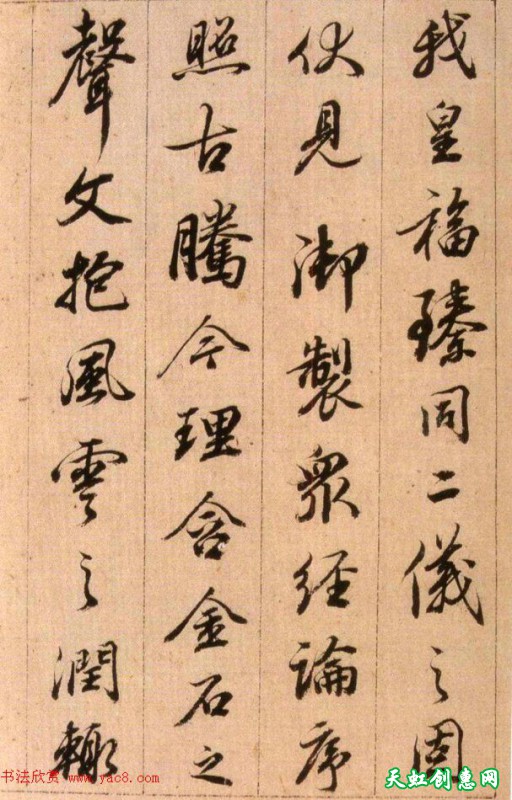 我皇福臻同二儀之固
伏見 御製衆經論序
照古騰今理含金石之
聲文抱風雲之潤輙
书法欣赏 www.yac8.com
天虹创惠网